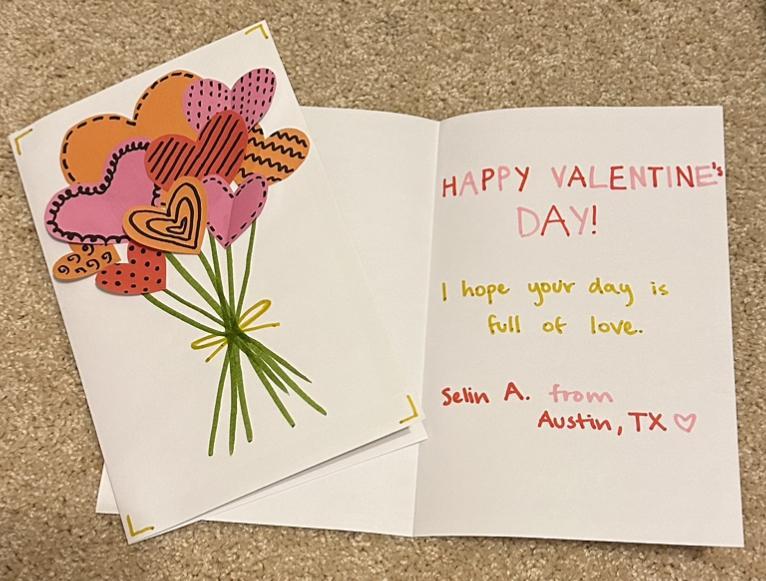 HAPPY VALENTINE's
DAY!
I hope your day is
full of love.
Selin A. from
Austin, TX ♡